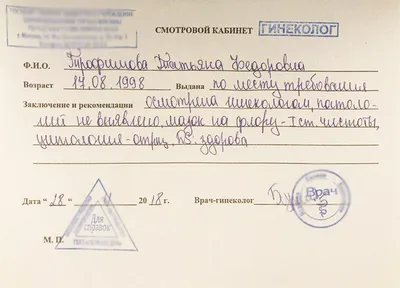 СМОТРОВОЙ КАБИНЕТ ГИНЕКОЛОГ
Ф.И.О. Трофимова Татьяна Федоровна
Возраст 17.08.1998 Выдана по месту требования
Заключение и рекомендации осмотрена гинекологом, патоло-
гий не выявлено, мазок на флору - I ст. чистоты,
цитология - отриц. DS: здорова
Дата "28" 2018 г. Врач-гинеколог
Для справок
Врач
М. П.